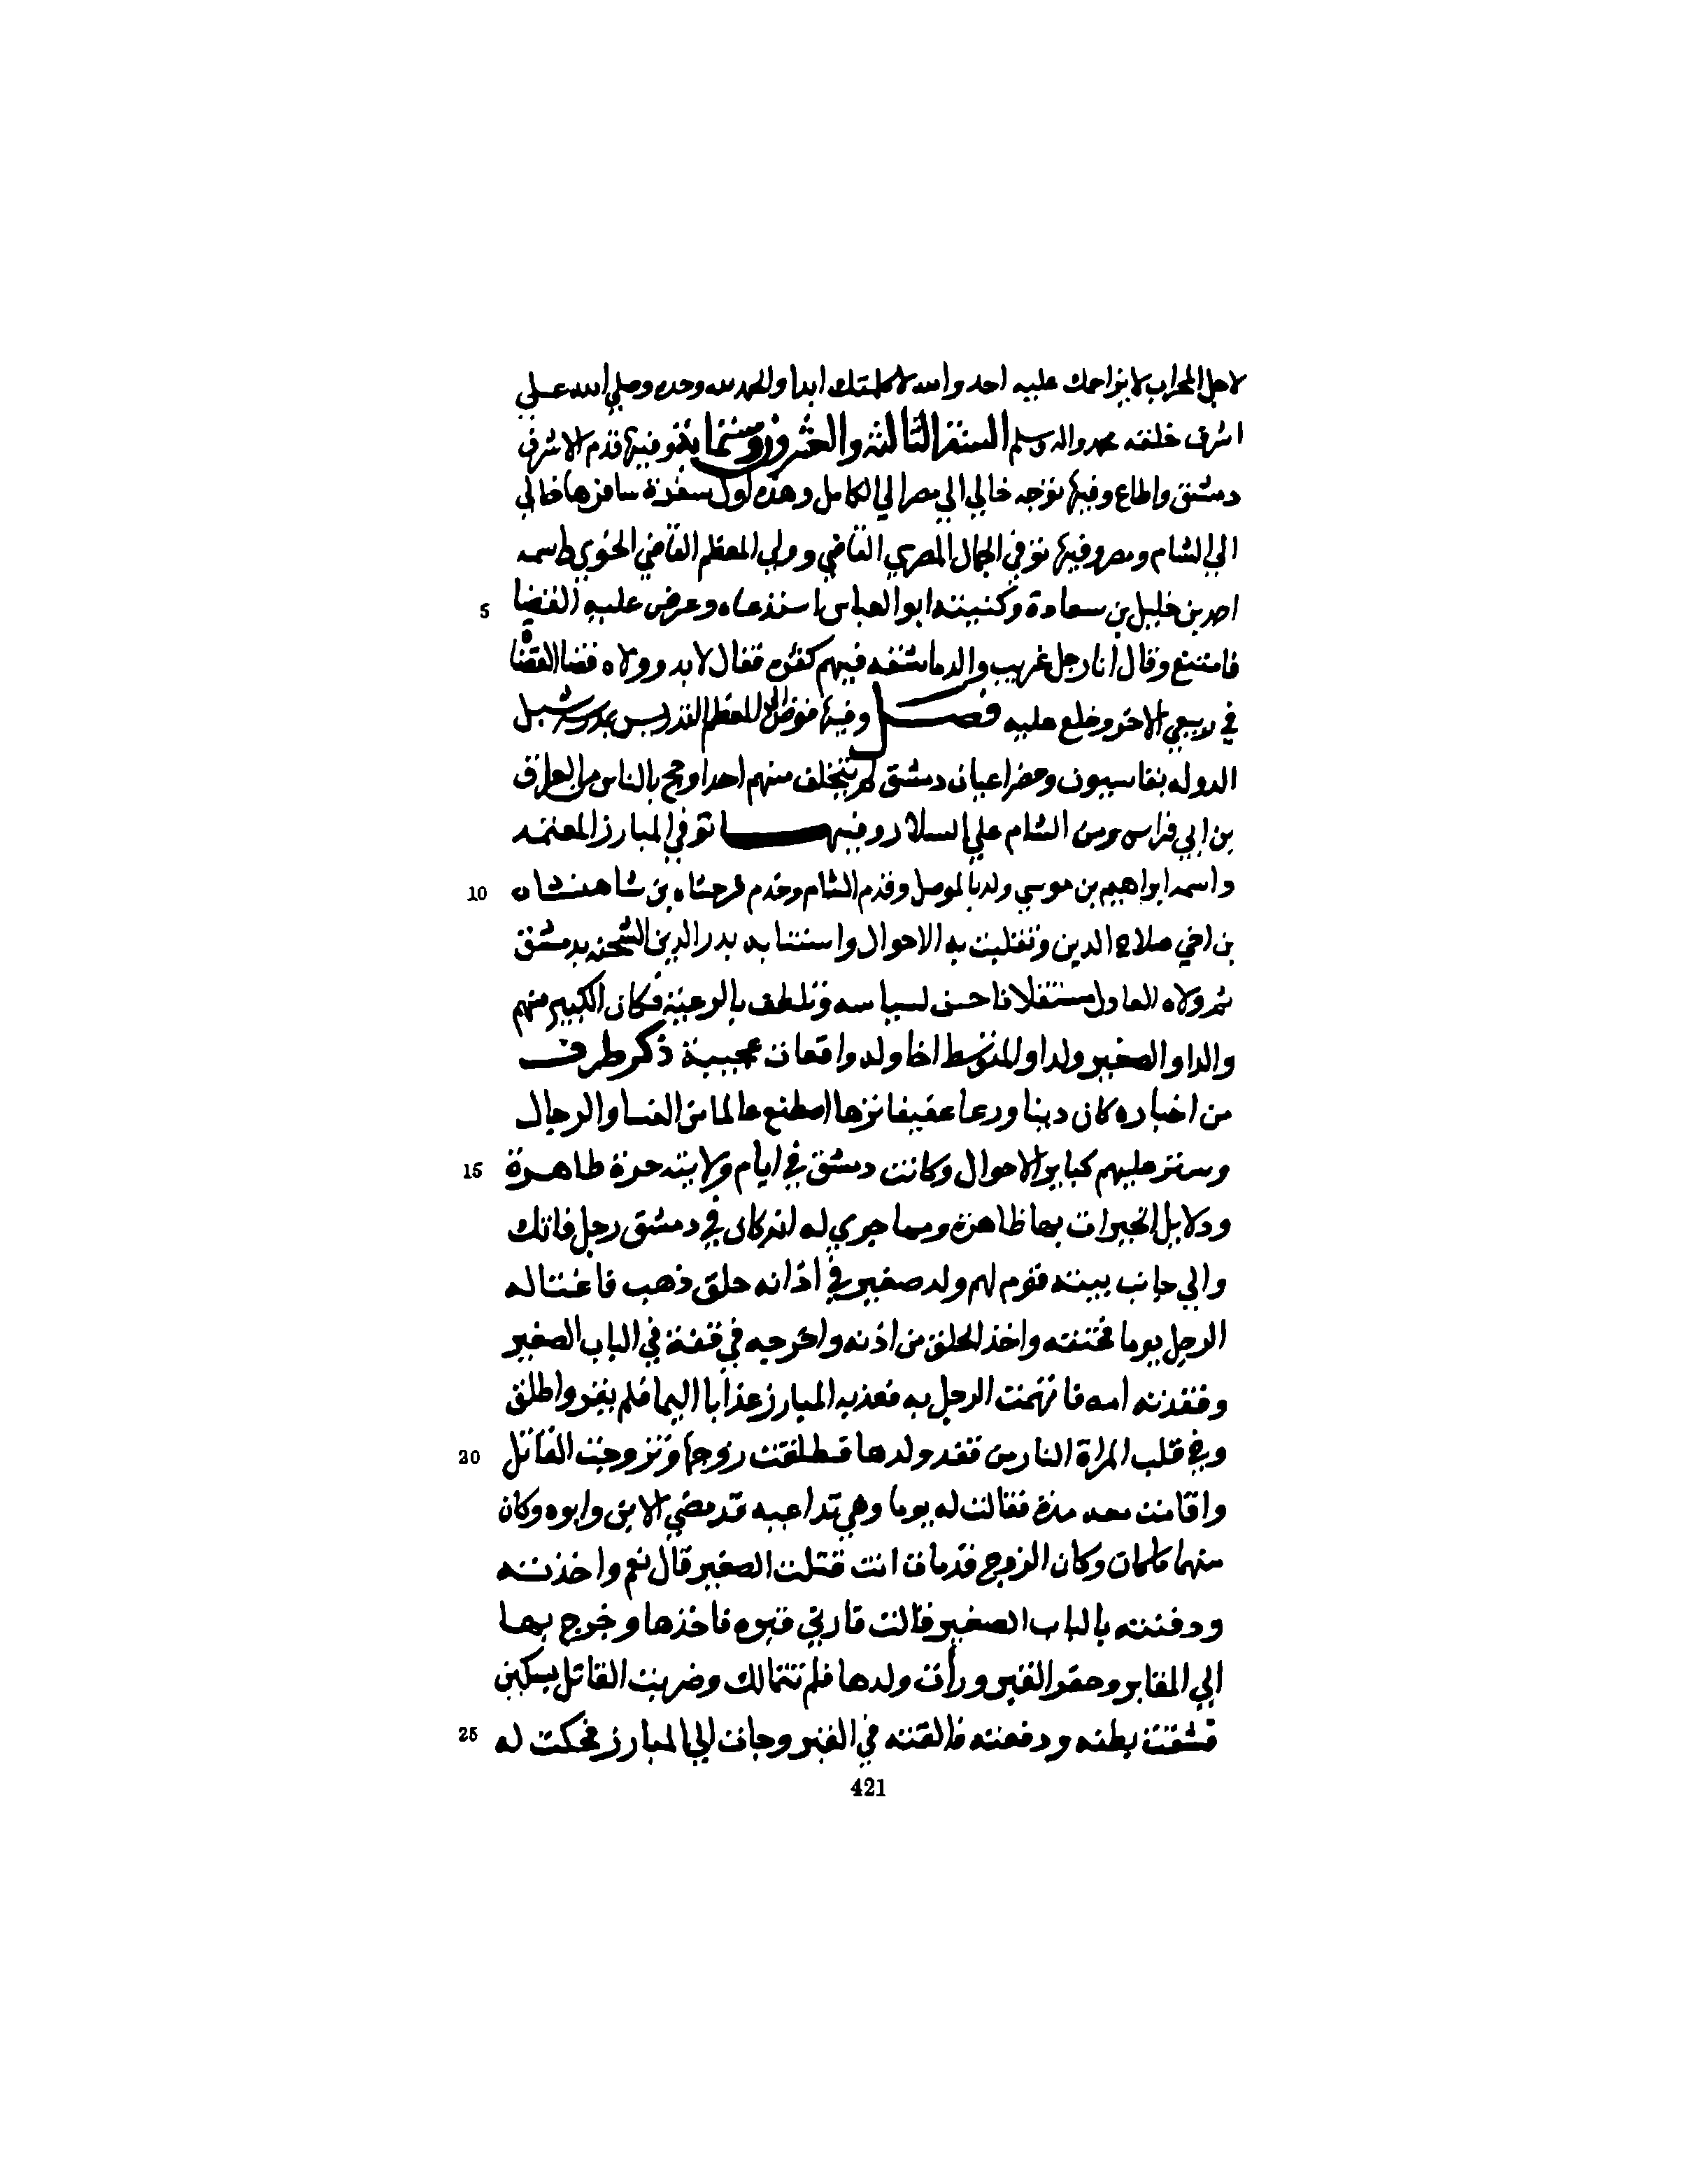 لاجل المحراب لا يزاحمك عليه احد والله لا كلمتك ابدا والحمد لله وحده وصلي الله عـلي
اشرف خلقه محمد واله وسلم السنة الثالثة والعشرون وستمايه وفيها قدم الاشرف
دمشق واطاع وفيها توجه خالي الي مصر الي الكامل وهذه اول سفرة سافرها خالي
الي الشام ومصر وفيها توفي الجمال المصري القاضي وولي المعظم القاضي الخوي واسمه
احمد بن خليل بن سعادة وكنيته ابو العباس استدعاه وعرض عليه القضا
فامتنع وقال انا رجل غريب والدماشقه فيهم كثره فقال لابد وولاه قضا القضا
في ربيع الاخر وخلع عليه فصل وفيها فوض الي المعظم التدريس بمدرسة شبل
الدوله بقاسيون وحضر اعيان دمشق لم يتخلف منهم احدا وحج بالناس من العراق
بن ابي فراس ومن الشام علي السلار وفيها توفي المبارز المعتمد
واسمه ابراهيم بن موسي ولد بالموصل وقدم الشام وخدم فرخشاه بن شاهنشاه
بن اخي صلاح الدين وتقلبت به الاحوال واستنابه بدر الدين الشحنه بدمشق
ثم ولاه العادل مستقلا فاحسن السياسه وتلطف بالرعية فكان الكبير منهم
والدا والصغير ولدا والمتوسط اخا وله واقعات عجيبة ذكر طرف
من اخباره كان دينا ورعا عفيفا نزها اصطنع عالما من النسا والرجال
وستر عليهم كباير الاحوال وكانت دمشق في ايام ولايته حرة طاهرة
ودلايل الخيرات بها ظاهرة ومما جري له انه كان في دمشق رجل فاتك
والي جانب بيته قوم لهم ولد صغير في اذانه حلق ذهب فاغتاله
الرجل يوما فخنقه واخذ الحلق من اذنه واخرجه في قفة في الباب الصغير
وفقدته امه فاتهمت الرجل به فعذبه المبارز عذابا اليما فلم يقر واطلق
وفي قلب المراة النار من فقد ولدها فطلقت زوجها وتزوجت القاتل
واقامت معه مدة فقالت له يوما وهي تداعبه قد مضي الابن وابوه وكان
منهما ماكان وكان الزوج قد مات انت قتلت الصغير قال نعم واخذته
ودفنته بالباب الصغير فقالت قاربني قبره فاخذها وخرج بها
الي المقابر وحفر القبر ورأت ولدها فلم تتمالك وضربت القاتل بسكين
فشقت بطنه ودفعته فالقته في القبر وجات الي المبارز فحكت له
5
10
15
20
25
421